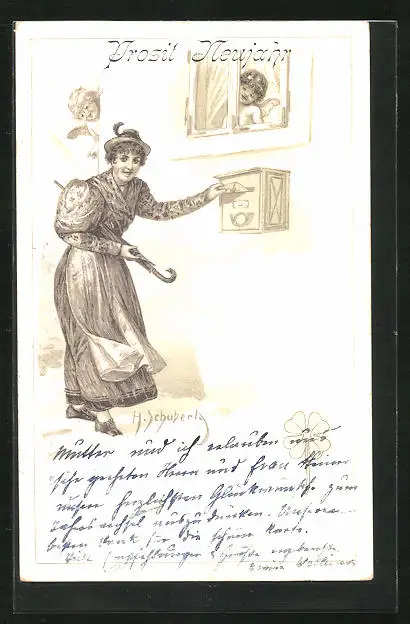 Prosit Neujahr
H. Schubert
Mutter und ich erlauben uns
sehr geehrten Herrn und Frau
unsere herzlichsten Glückwünsche zum
Jahreswechsel auszudrücken. Unseren
besten Dank für die schöne Karte.
Empfehlungen Grüße